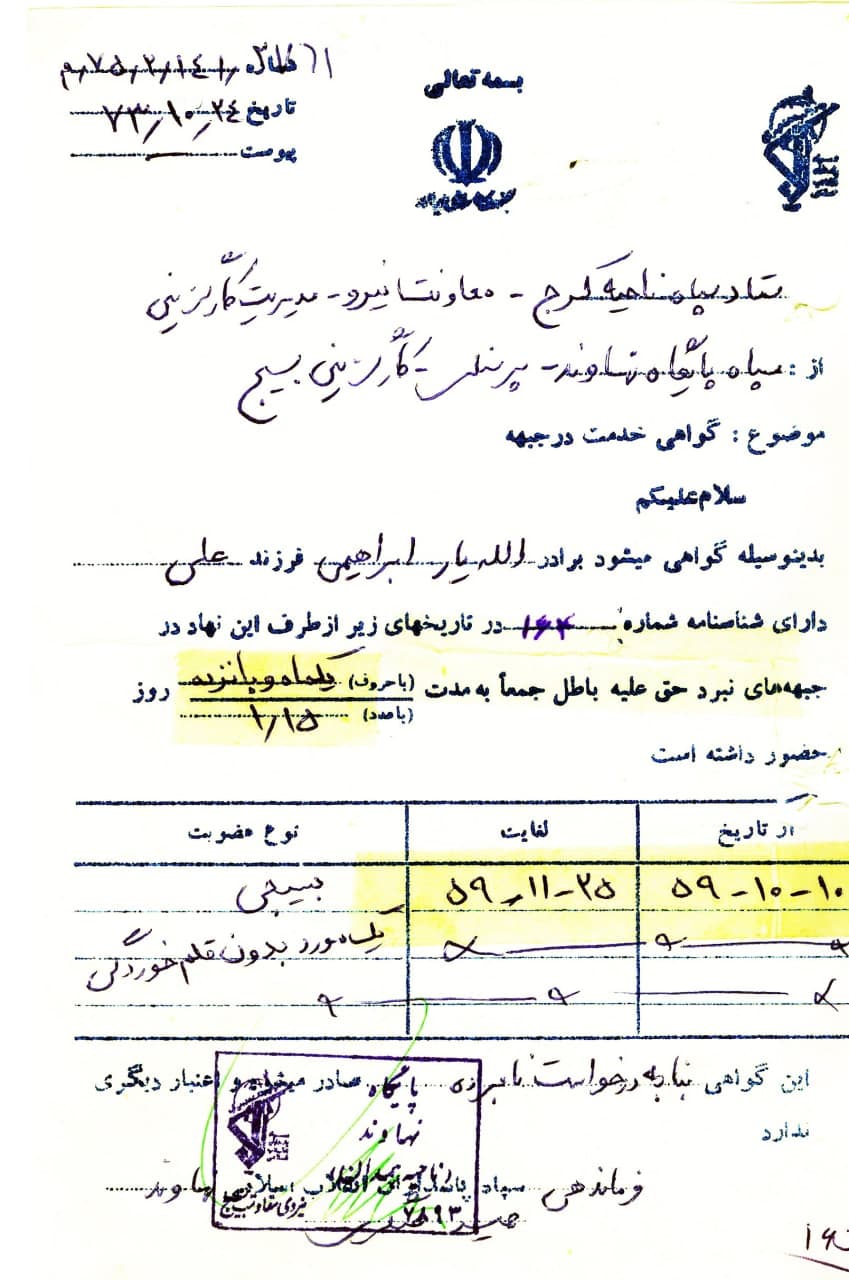 بسمه تعالی
شماره
تاریخ ۷۳٫۱۰٫۲۴
پیوست
ستاد سپاه ناحیه کرج - معاونت نیرو - مدیریت کارگزینی
از: سپاه پایگاه نهاوند - پرسنلی - کارگزینی بسیج
موضوع: گواهی خدمت در جبهه
سلام علیکم
بدینوسیله گواهی میشود برادر الله یار ابراهیمی فرزند علی
دارای شناسنامه شماره ۱۶۴ در تاریخهای زیر از طرف این نهاد در
جبهه‌های نبرد حق علیه باطل جمعاً به مدت (باحروف) یکماه و پانزده روز
(باعدد) ۱٫۱۵
حضور داشته است
از تاریخ لغایت نوع عضویت
۵۹-۱۰-۱۰ ۵۹-۱۱-۲۵ بسیجی
یک مورد بدون قلم خوردگی
این گواهی بنا به درخواست نامبرده صادر میشود و اعتبار دیگری
ندارد
فرماندهی سپاه پاسداران انقلاب اسلامی نهاوند
پایگاه
نهاوند
نیروی مقاومت بسیج
۷۸۹۳